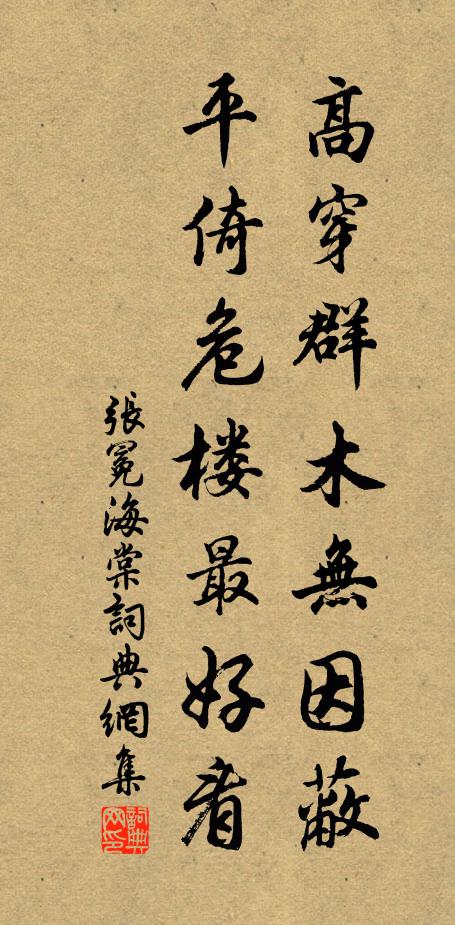 高穿群木無因蔽
平倚危楼最好看
張冕海棠詞典網集
詞典网印